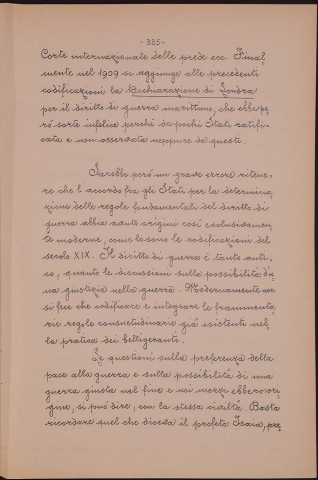 - 385 -
Corte internazionale delle prede ecc. Final
mente nel 1909 si aggiunge alle precedenti
codificazioni la Dichiarazione di Londra
per il diritto di guerra marittimo, che ebbe pe
rò sorte infelice perché da pochi Stati ratifi-
cata e non osservata neppure da questi.
Sarebbe però un grave errore ritene-
re che l'accordo fra gli Stati per la determina-
zione delle regole fondamentali del diritto di
guerra abbia avuto origini così esclusivamen-
te moderne, come lo sono le codificazioni del
secolo XIX. Il diritto di guerra è tanto anti-
co, quanto le discussioni sulla possibilità d'u
na giustizia nella guerra. Modernamente non
si fece che codificare e integrare le frammenta-
rie regole consuetudinarie già esistenti nel-
la pratica dei belligeranti.
Le questioni sulla preferenza della
pace alla guerra e sulla possibilità di una
guerra giusta nel fine e nei mezzi ebbero ori-
gine, si può dire, con la stessa civiltà. Basta
ricordare quel che diceva il profeta Isaia, pre